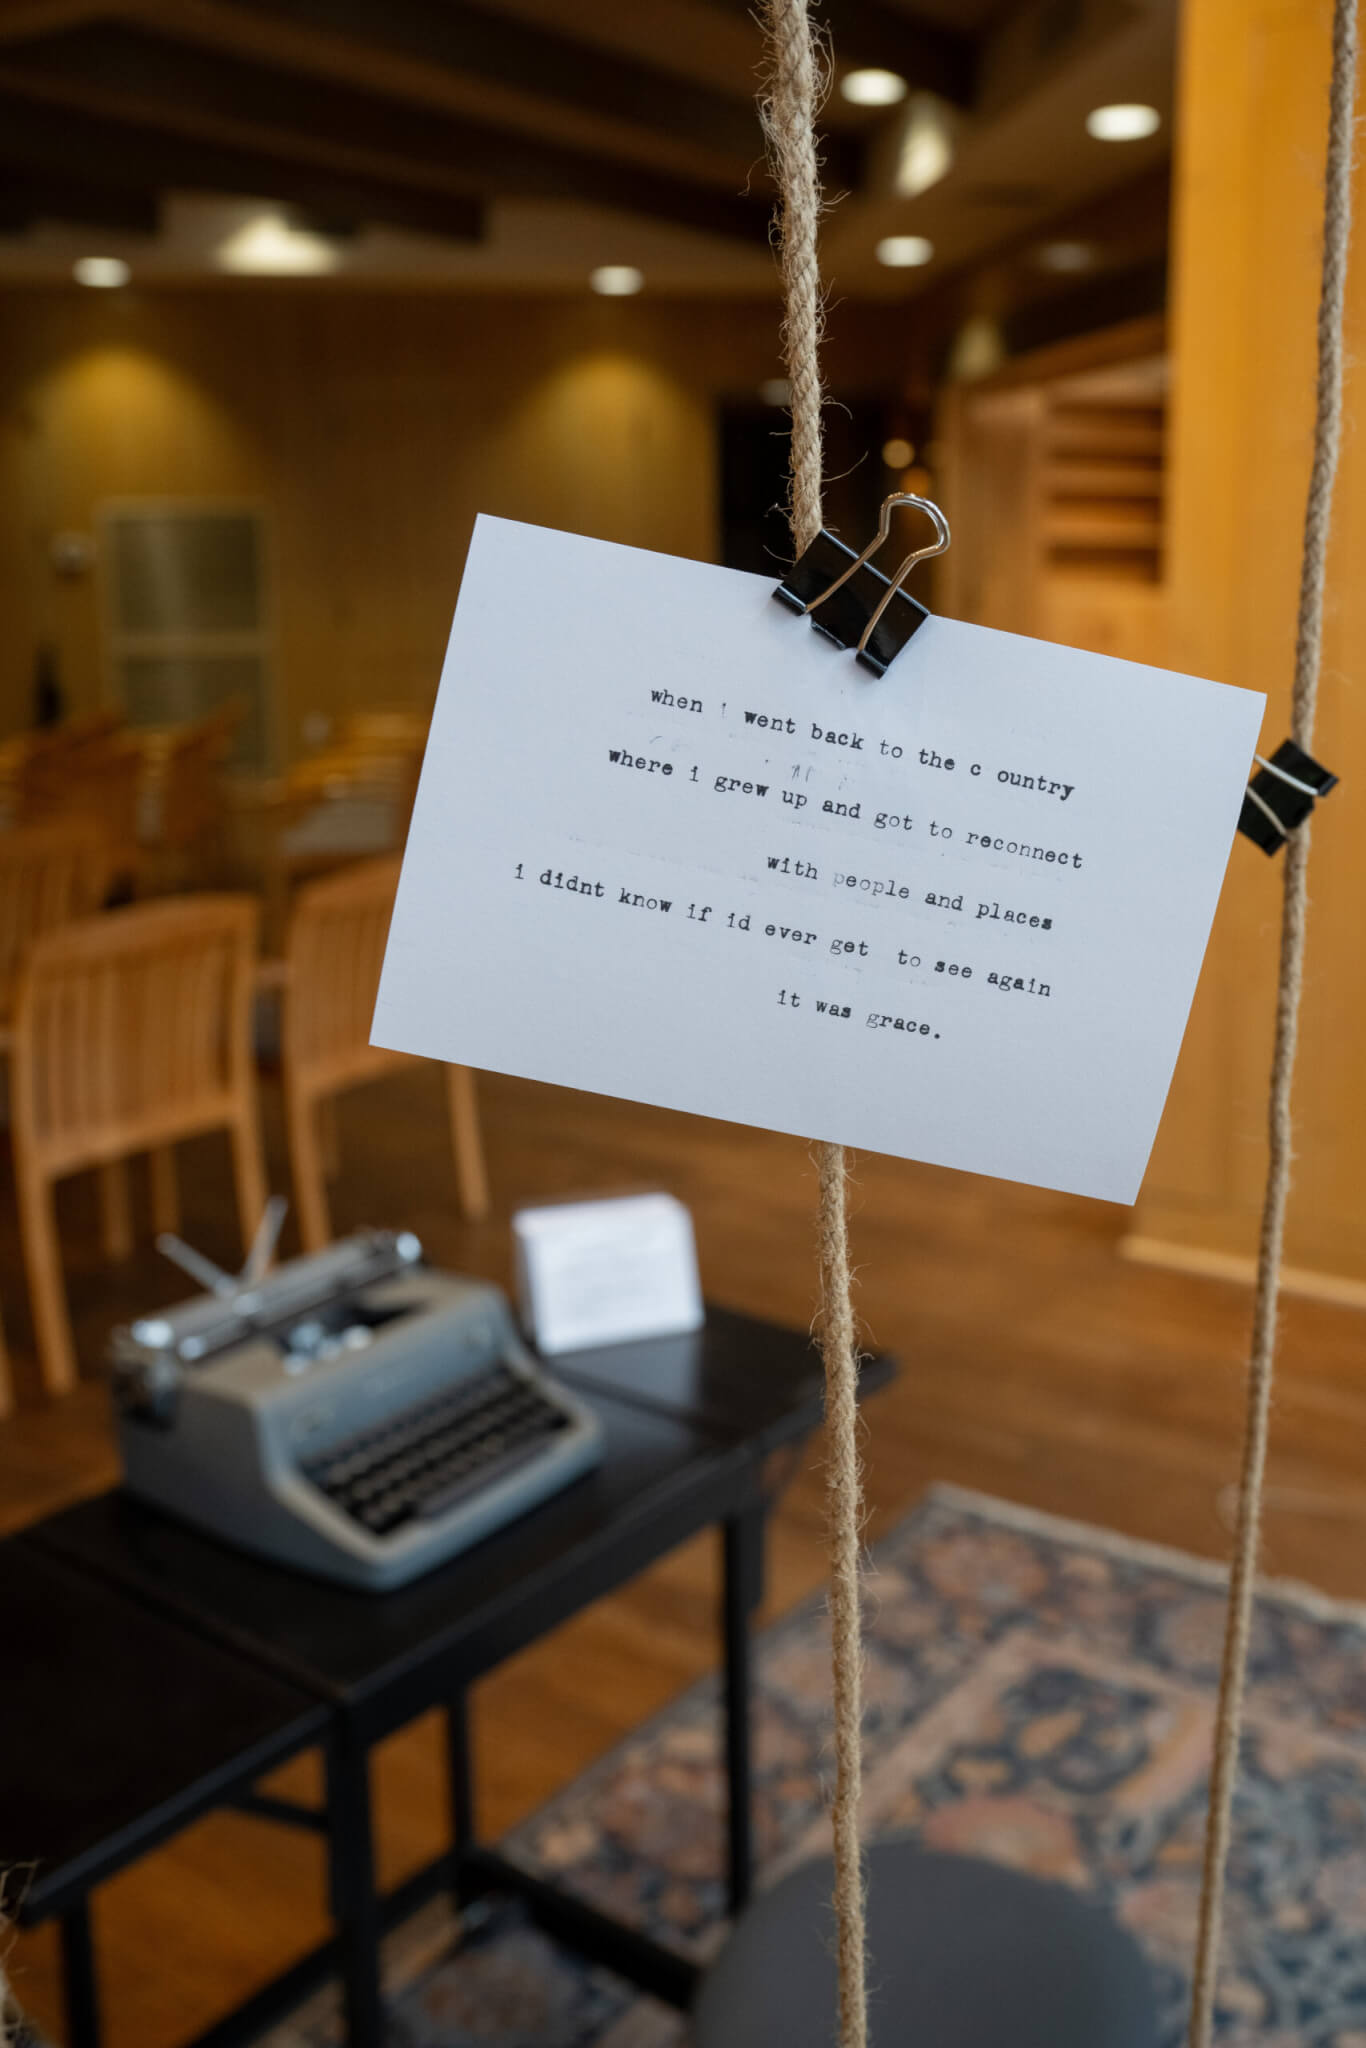 when i went back to the c ountry
where i grew up and got to reconnect
with people and places
i didnt know if id ever get  to see again
it was grace.